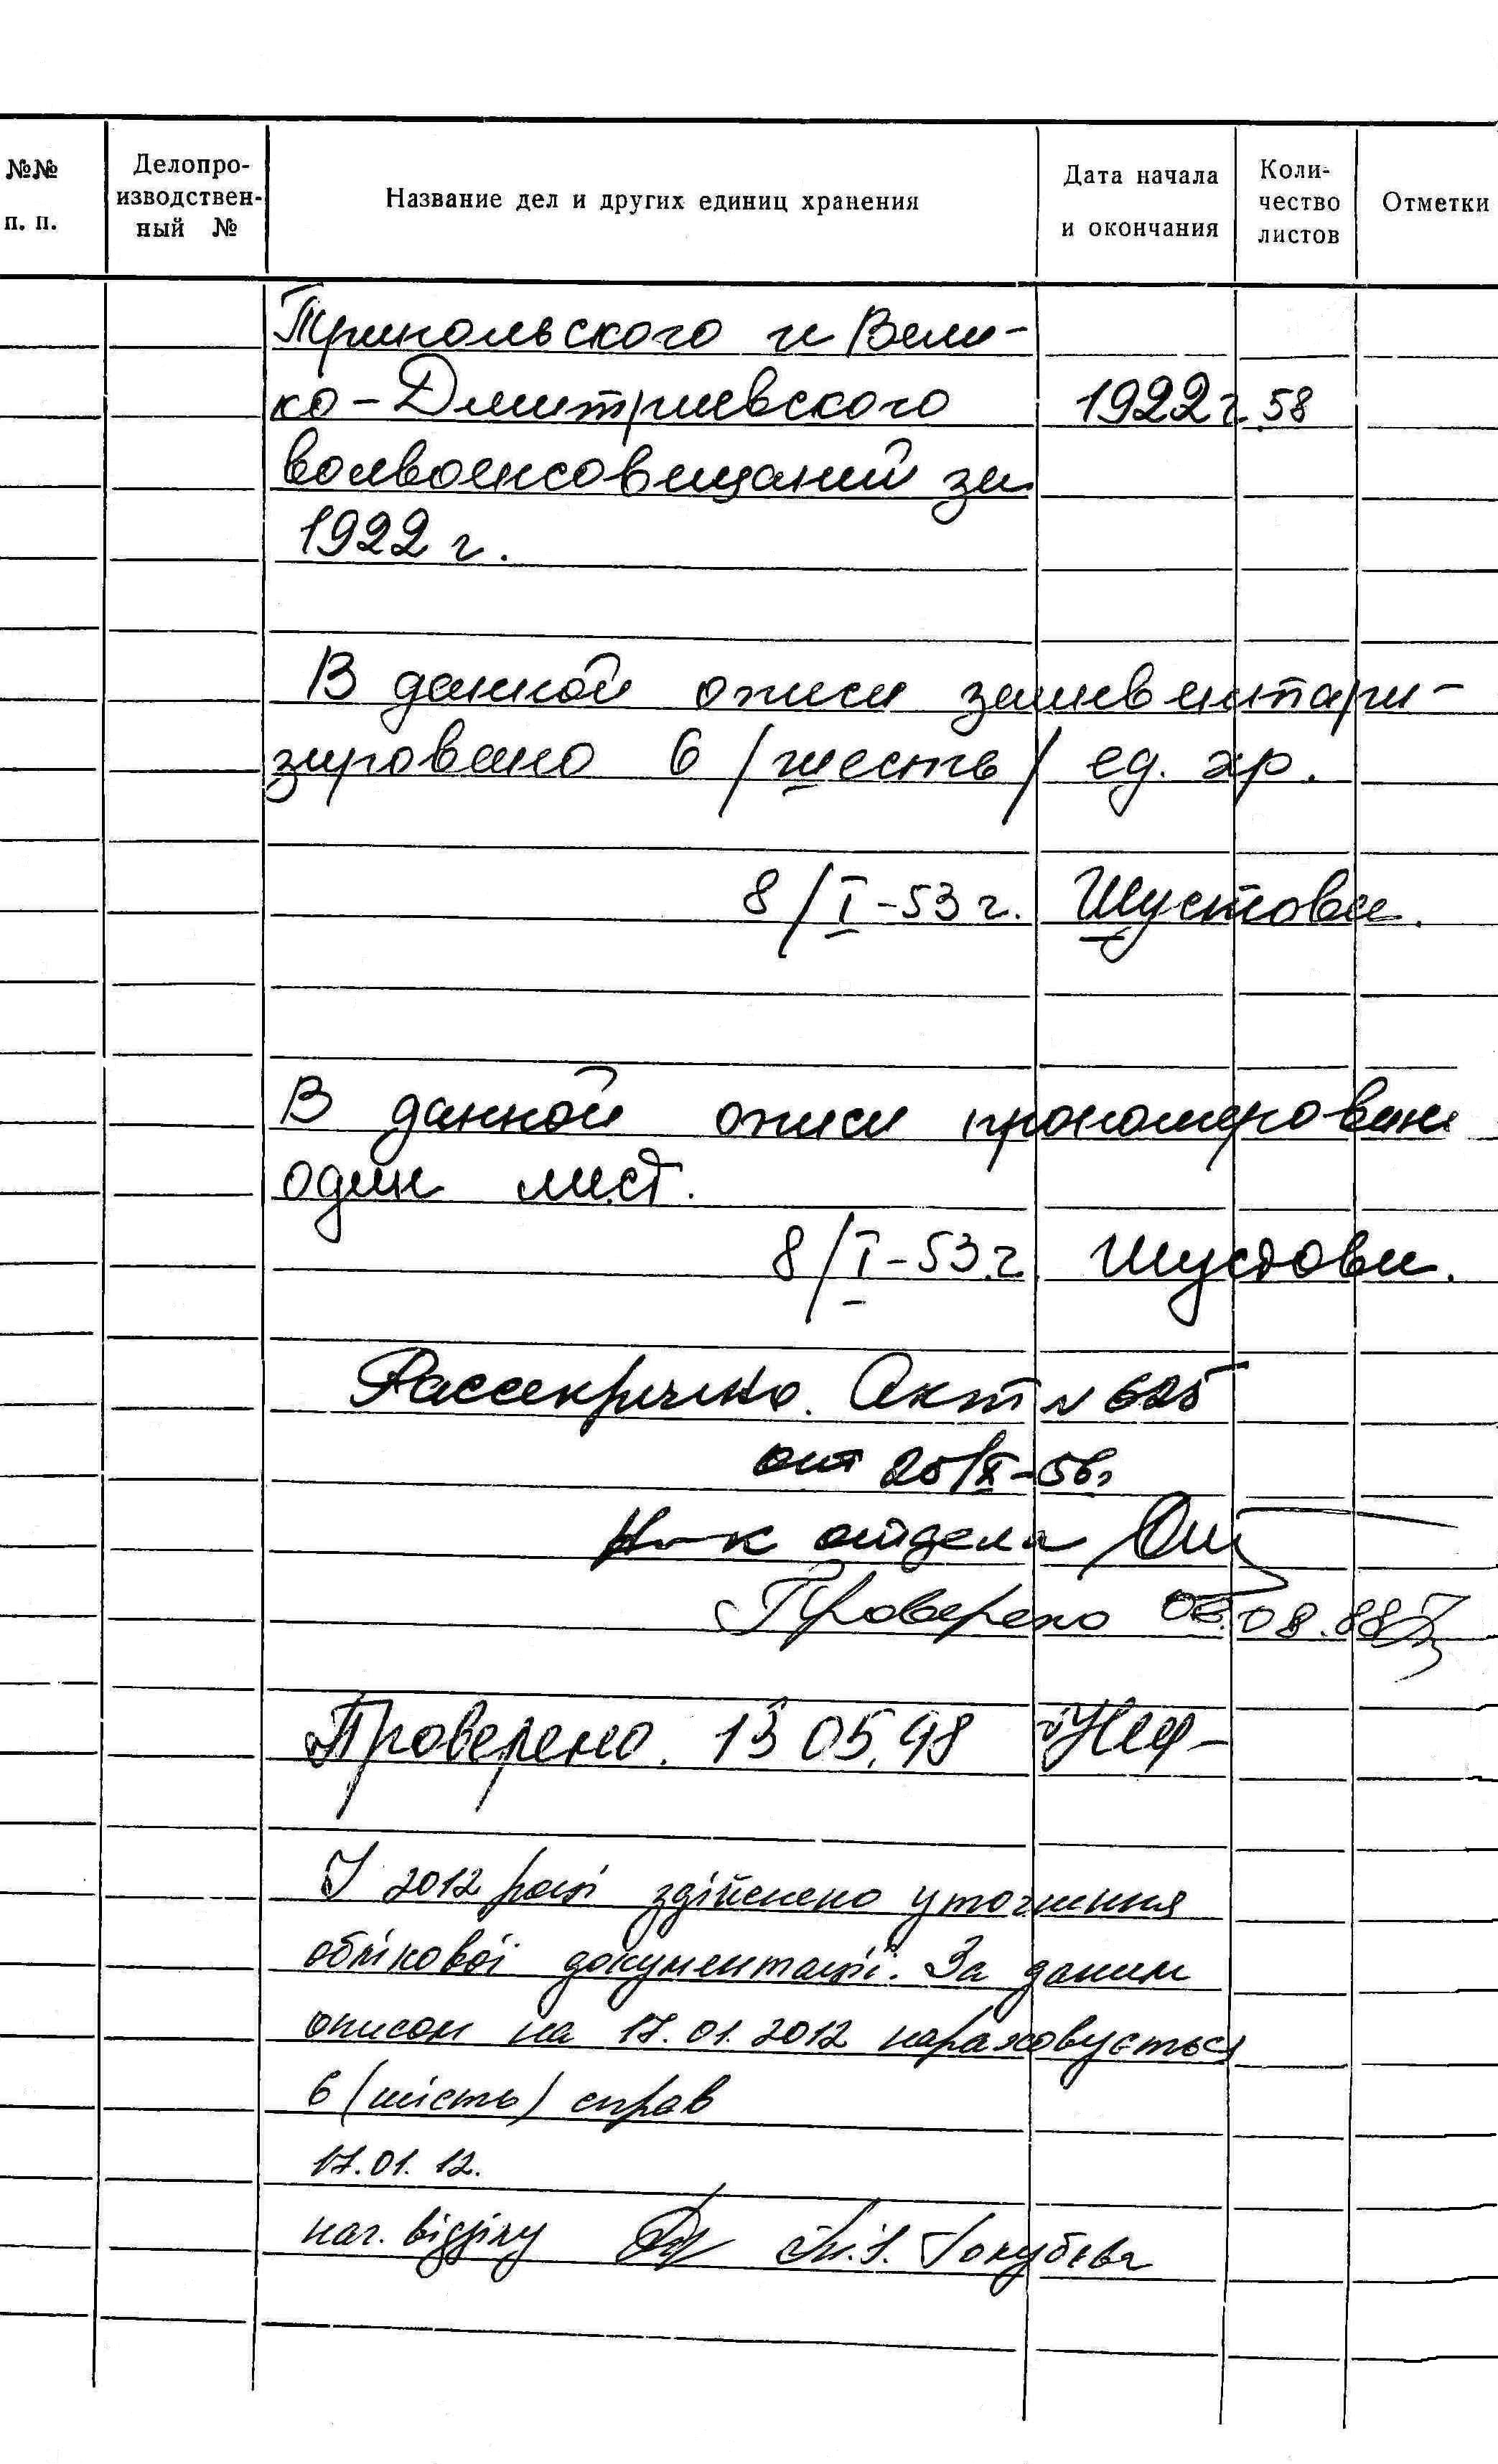 №№ п. п.
Делопро-
изводствен-
ный №
Название дел и других единиц хранения
Дата начала
и окончания
Коли-
чество
листов
Отметки
Трипольского и Вели-
ко-Дмитриевского 1922 г. 58
волвоенсовещаний за
1922 г.
В данной описи заинвентари-
зировано 6 /шесть/ ед. хр.
8/I-53 г. Шустова.
В данной описи прономерован
один лист.
8/I-53 г. Шустова.
Рассекречено. Акт № 625
от 25/X-56г
Н-к отдела
Проверено 08.88
Проверено. 13 05.98
У 2012 році здійснено уточнення
облікової документації. За даним
описом на 17.01.2012 нараховується
6 (шість) справ
17.01.12.
нач. відділу Голубєва